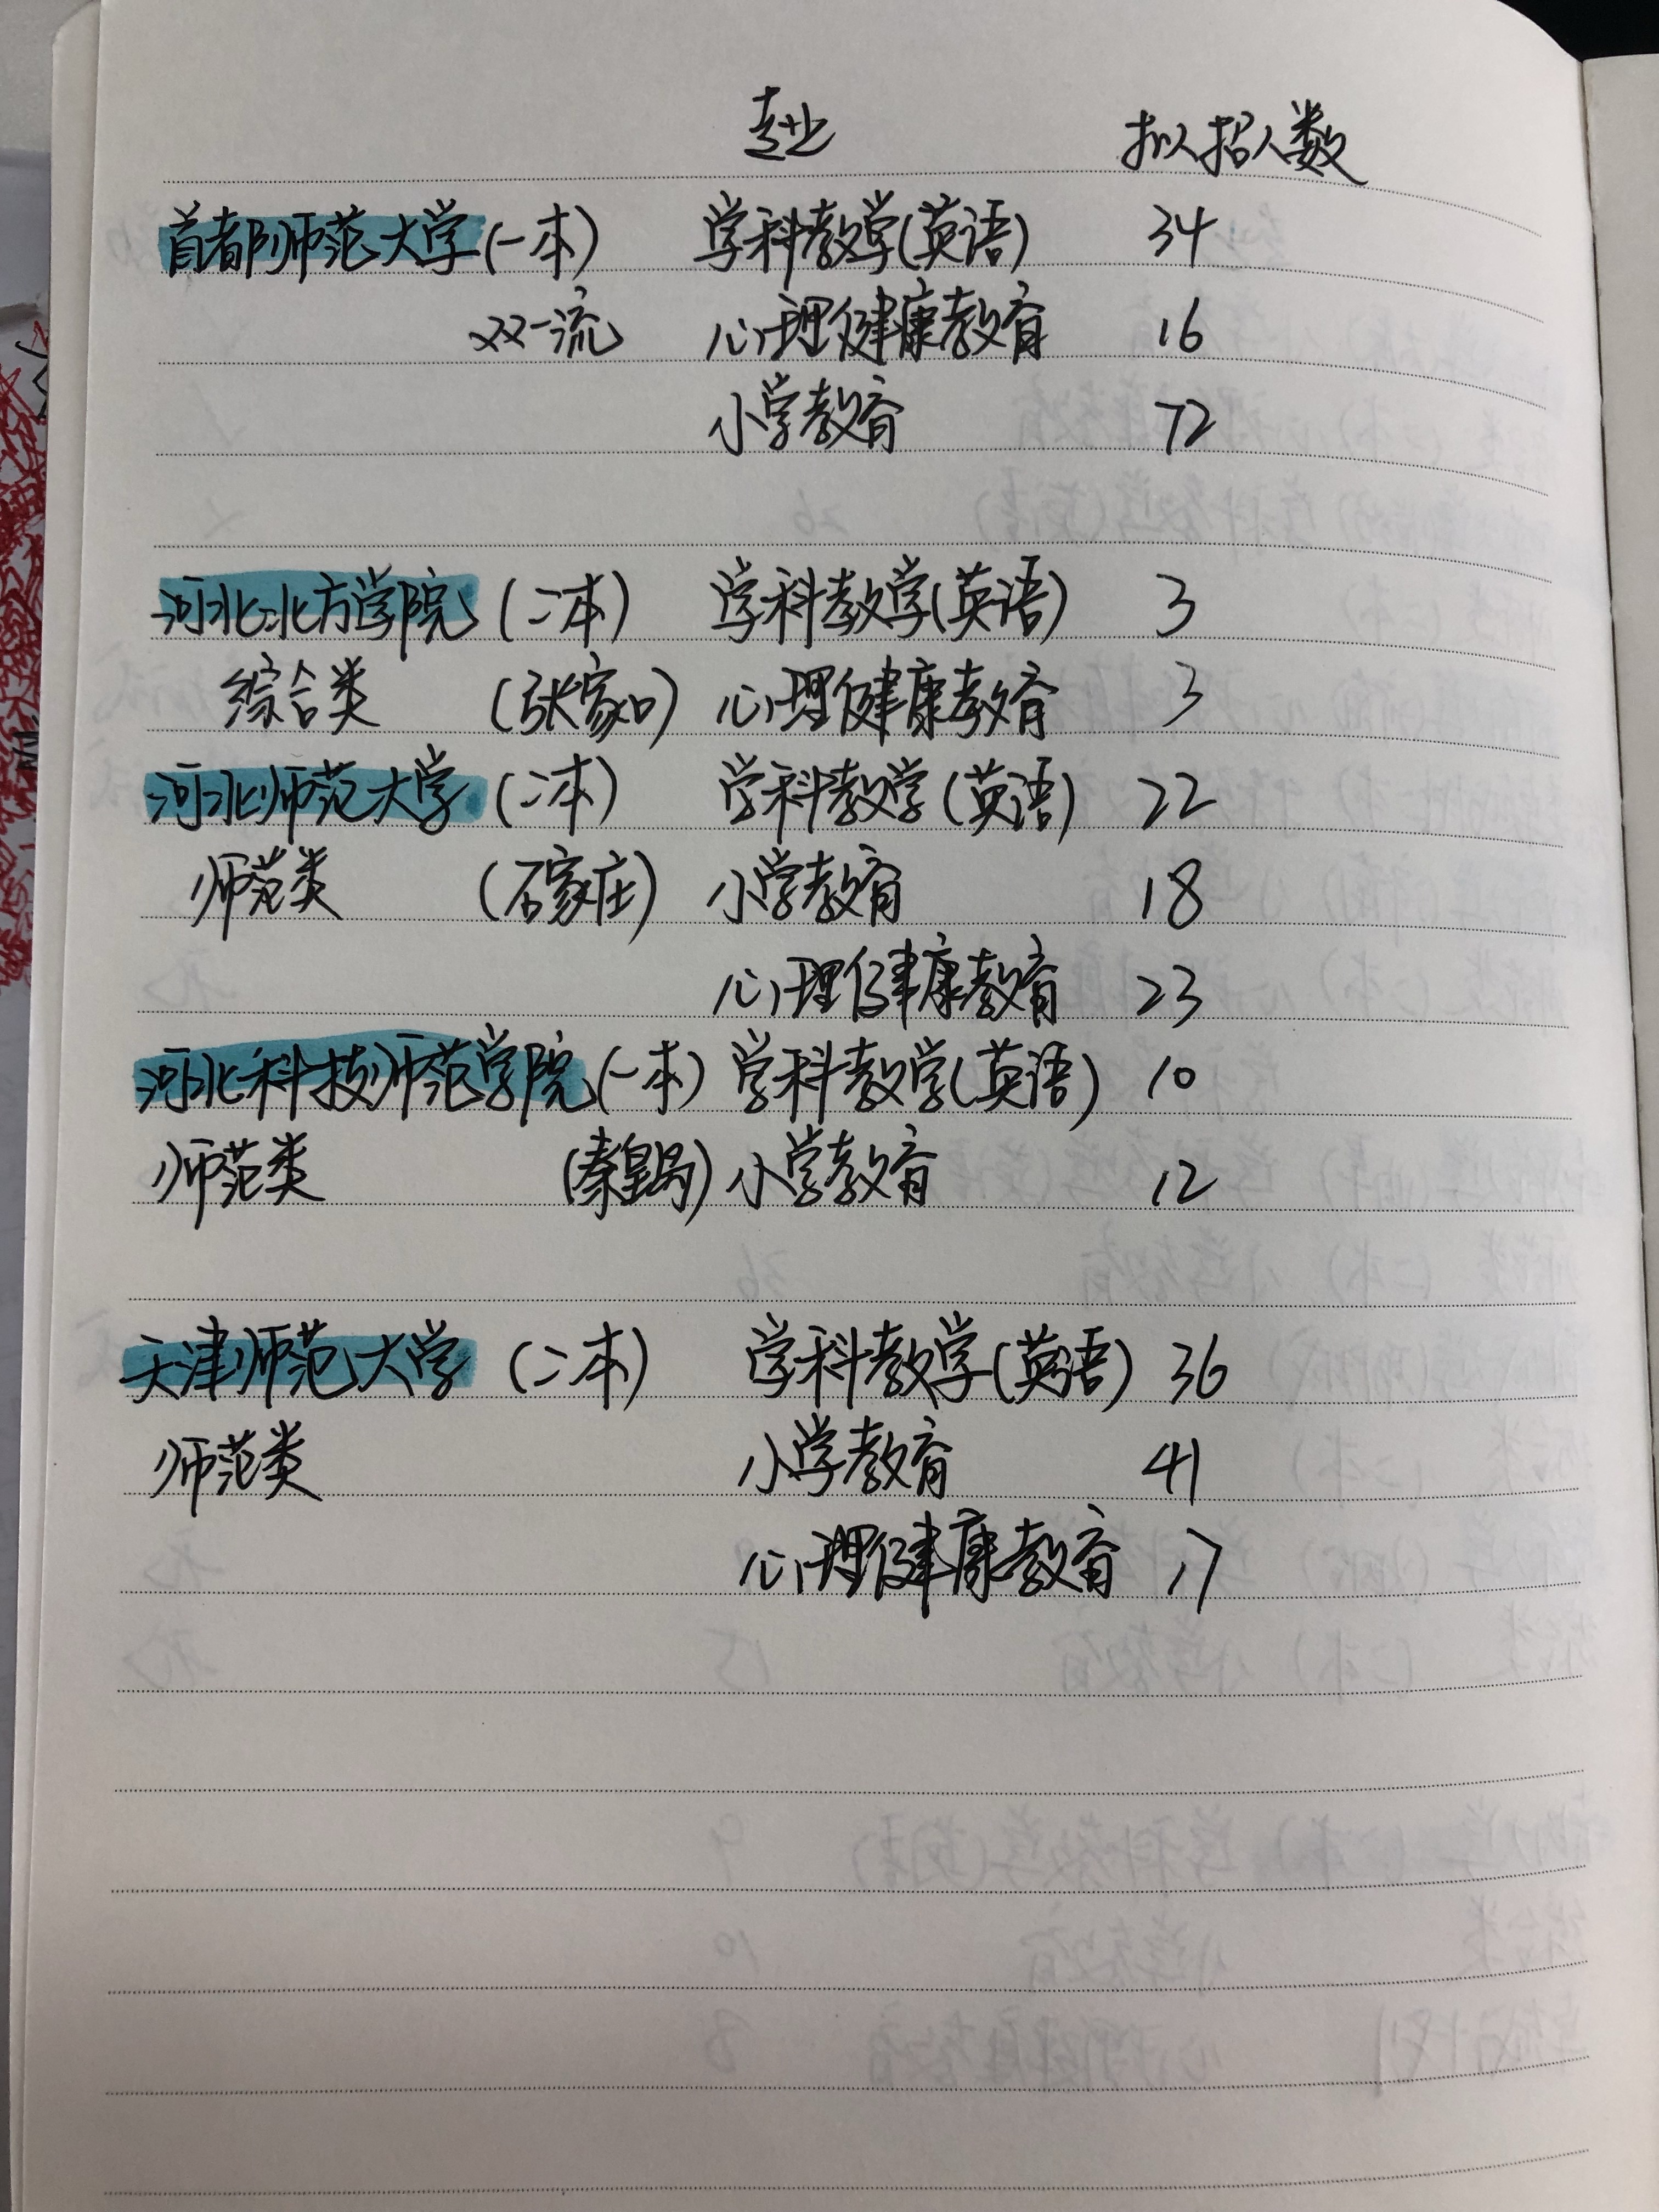 专业 拟招人数
首都师范大学(一本) 学科教学(英语) 34
双一流 心理健康教育 16
小学教育 72
河北北方学院(二本) 学科教学(英语) 3
综合类 (张家口) 心理健康教育 3
河北师范大学(二本) 学科教学(英语) 22
师范类 (石家庄) 小学教育 18
心理健康教育 23
河北科技师范学院(一本) 学科教学(英语) 10
师范类 (秦皇岛) 小学教育 12
天津师范大学(二本) 学科教学(英语) 36
师范类 小学教育 41
心理健康教育 17